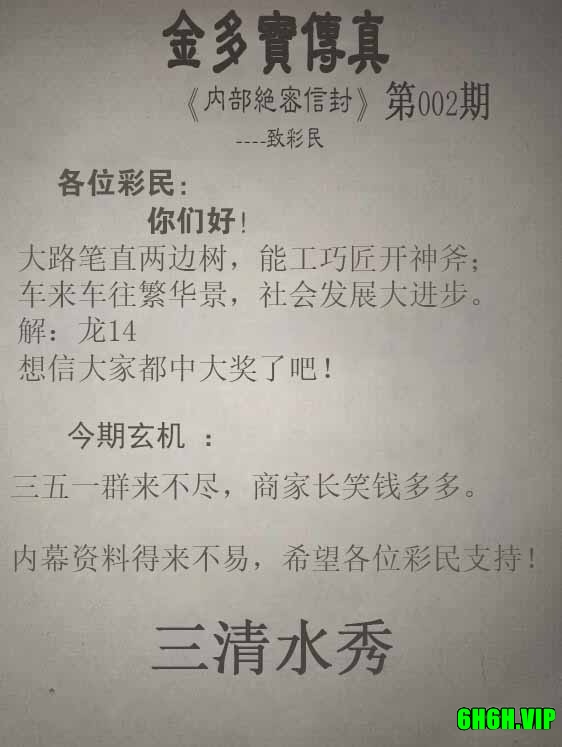 金多寳傳真
《内部絶密信封》第002期
----致彩民
各位彩民:
你们好!
大路笔直两边树，能工巧匠开神斧；
车来车往繁华景，社会发展大进步。
解：龙14
想信大家都中大奖了吧！
今期玄机 ：
三五一群来不尽，商家长笑钱多多。
内幕资料得来不易，希望各位彩民支持！
三清水秀
6H6H.VIP